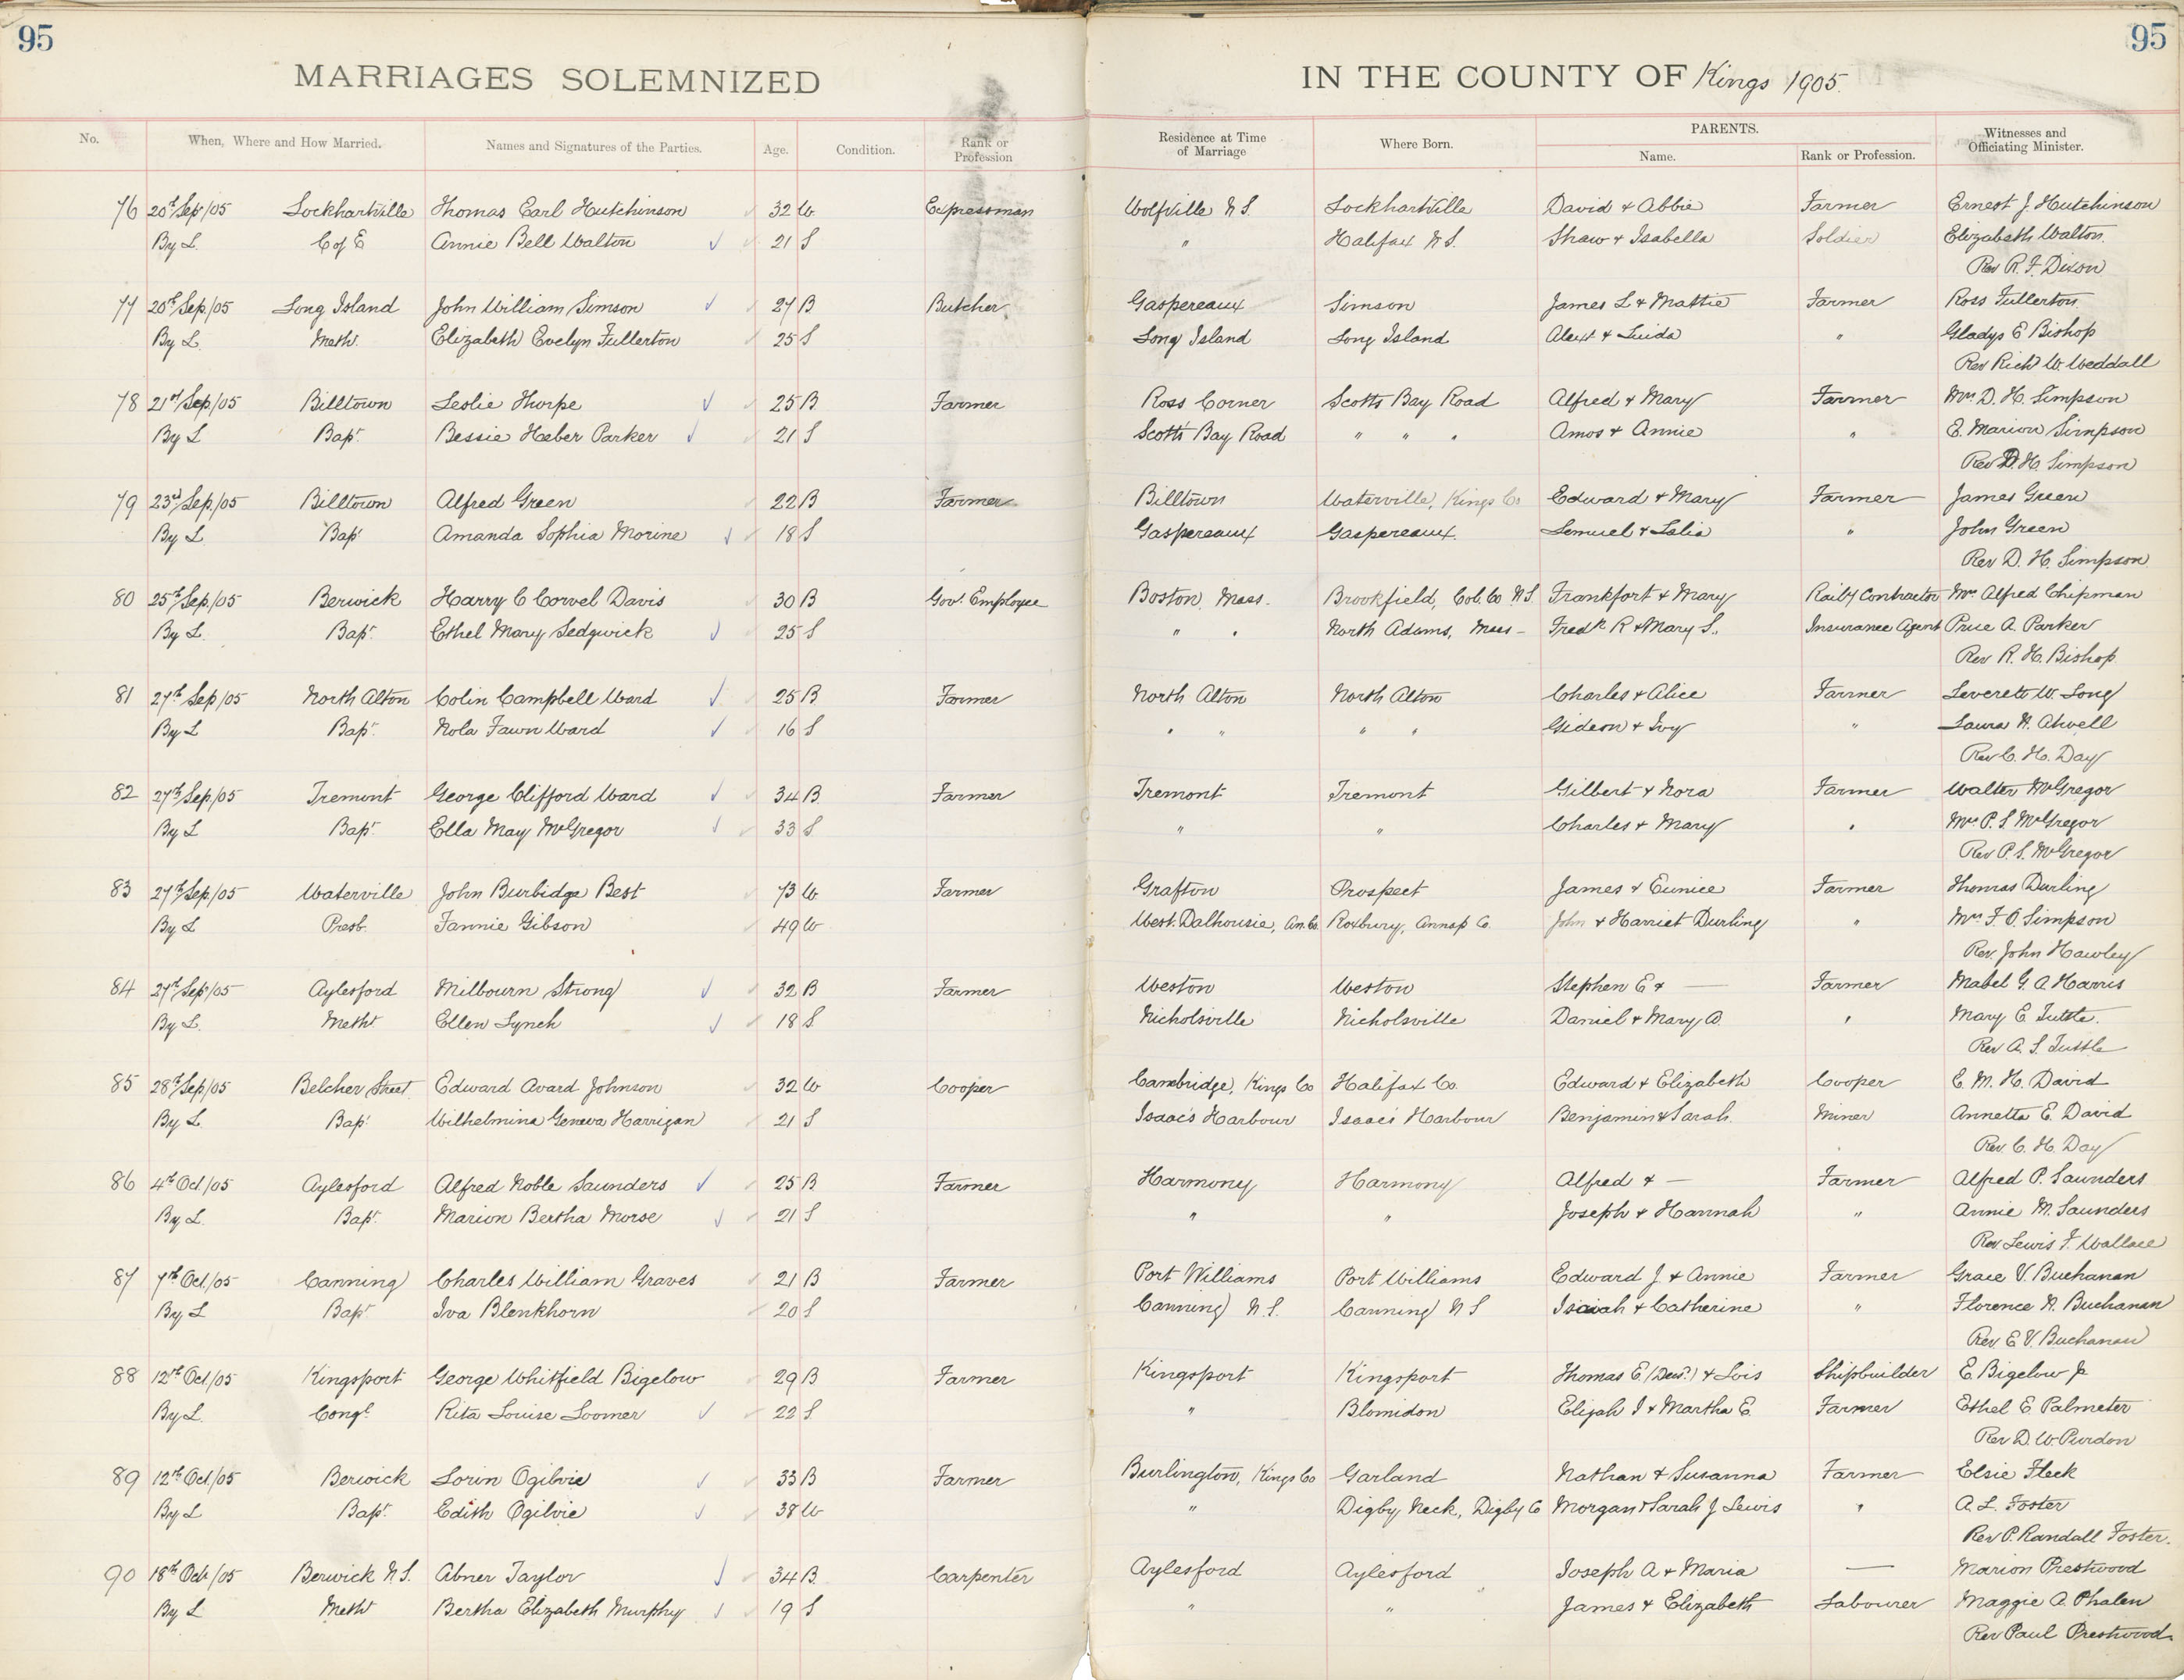 95
95
MARRIAGES SOLEMNIZED
IN THE COUNTY OF Kings 1905.
No. When, Where and How Married. Names and Signatures of the Parties. Age. Condition. Rank or Profession Residence at Time of Marriage Where Born. PARENTS. Name. Rank or Profession. Witnesses and Officiating Minister.
76 20th Sep/05 Lockhartville Thomas Earl Hutchinson 32 W Expressman Wolfville N.S. Lockhartville David & Abbie Farmer Ernest J. Hutchinson
By L. C of E Annie Bell Walton 21 S " Halifax N.S. Shaw & Isabella Soldier Elizabeth Walton
Rev R. F. Dixon
77 20th Sep./05 Long Island John William Simson 27 B Butcher Gaspereaux Simson James L & Mattie Farmer Ross Fullerton
By L. Meth. Elizabeth Evelyn Fullerton 25 S Long Island Long Island Alex & Luida " Gladys E Bishop
Rev Richd W. Weddall
78 21st Sep./05 Billtown Leslie Thorpe 25 B Farmer Ross Corner Scotts Bay Road Alfred & Mary Farmer Mrs D. H. Simpson
By L Bapt. Bessie Heber Parker 21 S Scotts Bay Road " " " Amos & Annie " E. Marion Simpson
Rev D. H. Simpson
79 23rd Sep./05 Billtown Alfred Green 22 B Farmer Billtown Waterville, Kings Co Edward & Mary Farmer James Green
By L. Bapt Amanda Sophia Morine 18 S Gaspereaux Gaspereaux. Lemuel & Lelia " John Green
Rev D. H. Simpson
80 25th Sep./05 Berwick Harry C Corvel Davis 30 B Gov. Employee Boston, Mass. Brookfield, Col. Co N.S. Frankfort & Mary Raily Contractor Mrs Alfred Chipman
By L. Bapt. Ethel Mary Sedgwick 25 S " " North Adams, Mass - Fredk R & Mary S. Insurance Agent Prue A. Parker
Rev R. H. Bishop
81 27th Sep/05 North Alton Colin Campbell Ward 25 B Farmer North Alton North Alton Charles & Alice Farmer Leverett W. Long
By L Bapt. Nola Fawn Ward 16 S " " " " Gideon & Ivy " Laura N. Atwell
Rev C. H. Day
82 27th Sep./05 Tremont George Clifford Ward 34 B Farmer Tremont Tremont Gilbert & Nora Farmer Walter McGregor
By L Bapt. Ella May McGregor 33 S " " Charles & Mary " Mrs P. S. McGregor
Rev P. S. McGregor
83 27th Sep/05 Waterville John Burbidge Best 73 W Farmer Grafton Prospect James & Eunice Farmer Thomas Durling
By L Presb. Fannie Gibson 49 W West. Dalhousie, An. Co. Roxbury, Annap Co. John & Harriet Durling " Mrs F. O. Simpson
Rev. John Hawley
84 27th Sep/05 Aylesford Milbourn Strong 32 B Farmer Weston Weston Stephen E & — Farmer Mabel G. A. Harris
By L. Meth. Ellen Lynch 18 S Nicholsville Nicholsville Daniel & Mary A. " Mary E. Tuttle.
Rev A. S. Tuttle
85 28th Sep/05 Belcher Street Edward Avard Johnson 32 W Cooper Cambridge, Kings Co Halifax Co. Edward & Elizabeth Cooper E. M. H. David
By L. Bapt Wilhelmina Geneva Harrigan 21 S Isaac's Harbour Isaac's Harbour Benjamin & Sarah. Miner Annetta E. David
Rev. C. H. Day
86 4th Oct/05 Aylesford Alfred Noble Saunders 25 B Farmer Harmony Harmony Alfred & — Farmer Alfred P. Saunders
By L. Bapt. Marion Bertha Morse 21 S " " Joseph & Hannah " Annie M. Saunders
Rev. Lewis F. Wallace
87 7th Oct./05 Canning Charles William Graves 21 B Farmer Port Williams Port Williams Edward J. & Annie Farmer Grace V. Buchanan
By L Bapt Iva Blenkhorn 20 S Canning N.S. Canning N S Isaiah & Catherine " Florence N. Buchanan
Rev. E. V. Buchanan
88 12th Oct./05 Kingsport George Whitfield Bigelow 29 B Farmer Kingsport Kingsport Thomas E (Decd.) & Lois Shipbuilder E. Bigelow Jr
By L. Congl. Rita Louise Loomer 22 S " Blomidon Elijah I & Martha E. Farmer Ethel E Palmeter
Rev D. W. Purdon
89 12th Oct./05 Berwick Lorin Ogilvie 33 B Farmer Burlington, Kings Co Garland Nathan & Susanna Farmer Elsie Fleck
By L Bapt. Edith Ogilvie 38 W " Digby Neck, Digby Co Morgan & Sarah J Lewis " A. L. Foster
Rev P. Randall Foster.
90 18th Oct/05 Berwick N.S. Abner Taylor 34 B. Carpenter Aylesford Aylesford Joseph A & Maria — Marion Prestwood
By L Meth Bertha Elizabeth Murphy 19 S " " James & Elizabeth Labourer Maggie A. Phalen
Rev Paul Prestwood